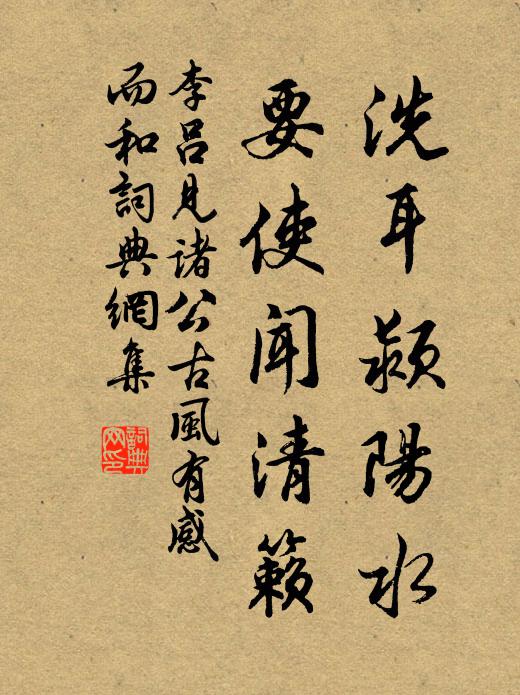 洗耳潁陽水
要使聞清籟
李呂見諸公古風有感
而和詞典網集
詞典
网印